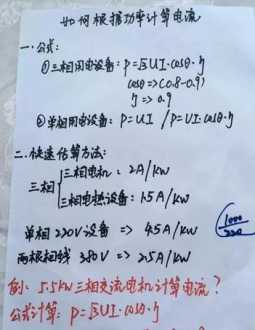 如何根据功率计算电流
一.公式:
①三相用电设备: P=√3UI·cosθ·η
cosθ=>(0.8-0.9)
η=>0.9
②单相用电设备: P=UI /P=UI·cosθ·η
二.快速估算方法:
三相 三相电机: 2A/KW
三相电热设备: 1.5A/KW
单相220V设备 => 4.5A/KW
两根相线 380V => 2.5A/KW
1000/220
例: 5.5KW三相交流电机计算电流?
公式计算: P=√3UI·cosθ·η